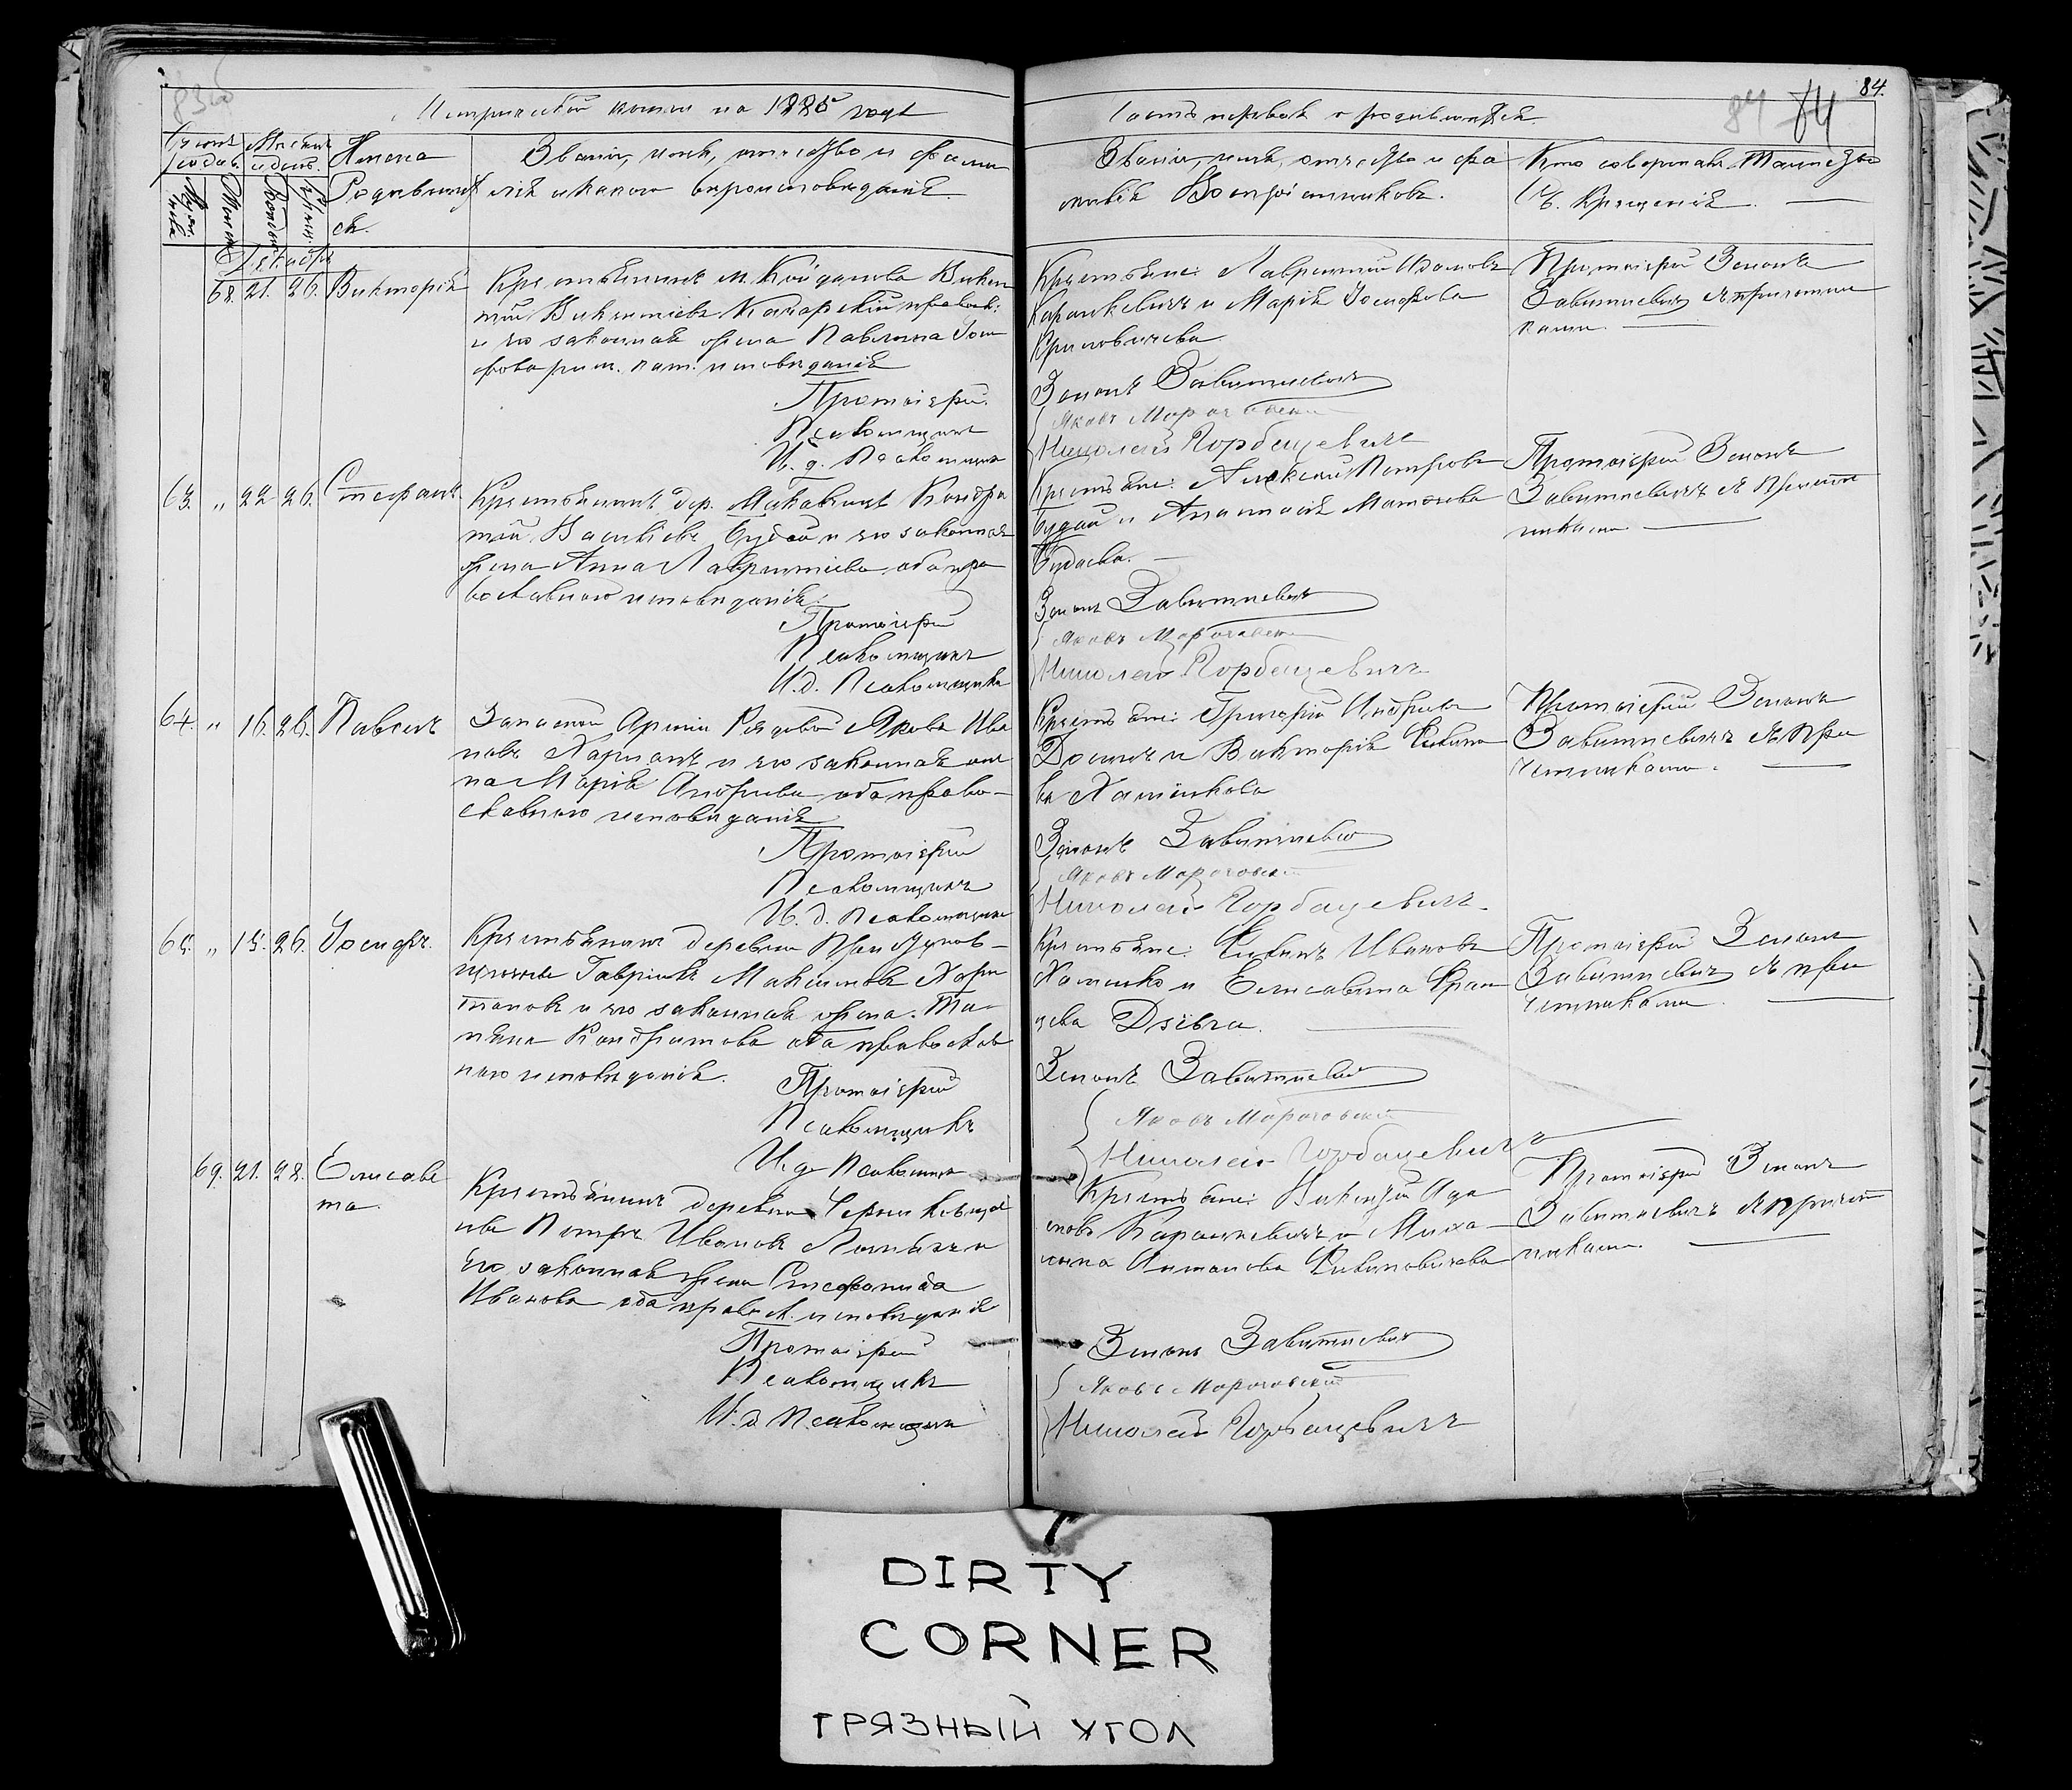 83об
Метрической книги на 1885 годъ
Имена
Родивших
ся.
Званіе, имя, отчество и фами
лія и какого вѣроисповѣданія.
Декабрь
68. 21. 26. Викторія
Крестьянинъ м. Койданова Викен
тій Викентіевъ Качарскій правосл:
и его законная жена Павлина Іоси
фова рим. кат. исповѣданія
Протоіерей
Псаломщикъ
И. д. Псаломщика
63. " 22 26. Стефанъ
Крестьянинъ дер. Кондра
тій Васильевъ Будай и его законная
жена Анна Лаврентіева оба пра
вославнаго исповѣданія.
Протоіерей
Псаломщикъ
И.д. Псаломщика
64. " 16. 26. Павелъ
Запасной Арміи Рядовой Яковъ Ива
новъ и его законная же
на Марія Андреева оба право-
славнаго исповѣданія
Протоіерей
Псаломщикъ
И. д. Псаломщика
65. " 15. 26. Іосифъ.
Крестьянинъ деревни
Гавріилъ Максимовъ Хари
тоновъ и его законная жена Та-
тіяна Кондратова оба православ
наго исповѣданія.
Протоіерей
Псаломщикъ
И. д. Псаломщика
69. 21. 28. Елисаве
та.
Крестьянинъ деревни
Петръ Ивановъ и
его законная жена Стефанида
Иванова оба правосл. исповѣданія
Протоіерей
Псаломщикъ
И. д. Псаломщика
84.
84 84
Часть первая о родившихся.
Званіе, имя, отчество и фа
милія Воспріемниковъ.
Кто совершалъ Таинство
Св. Крещенія.
Крестьяне: Лаврентій Адамовъ
Карашкевичъ и Марія Іосифова
Зенонъ Завитневичъ
Яковъ Морачевскій
Николай Горбацевичъ
Протоіерей Зенонъ
Завитневичъ съ причетни
ками.
Крестьяне: Алексій Петровъ
Будай и Анастасія Матвѣева
Будаева.
Зенонъ Завитневичъ
Яковъ Морачевскій
Николай Горбацевичъ
Протоіерей Зенонъ
Завитневичъ съ Причет
никами
Крестьяне: Григорій Андреевъ
и Викторія
ва
Зенонъ Завитневичъ
Яковъ Морачевскій
Николай Горбацевичъ.
Протоіерей Зенонъ
Завитневичъ съ При
четниками.
Крестьяне: Ивановъ
и Елисавета Фран
цева
Зенонъ Завитневичъ
Яковъ Морачевскій
Николай Горбацевичъ
Протоіерей Зенонъ
Завитневичъ съ при
четниками.
Крестьяне: Викентій Ада
мовъ Карашкевичъ и Миха
лина Антонова
Зенонъ Завитневичъ
Яковъ Морачевскій
Николай Горбацевичъ
Протоіерей Зенонъ
Завитневичъ съ причет
никами.
DIRTY
CORNER
ГРЯЗНЫЙ УГОЛ